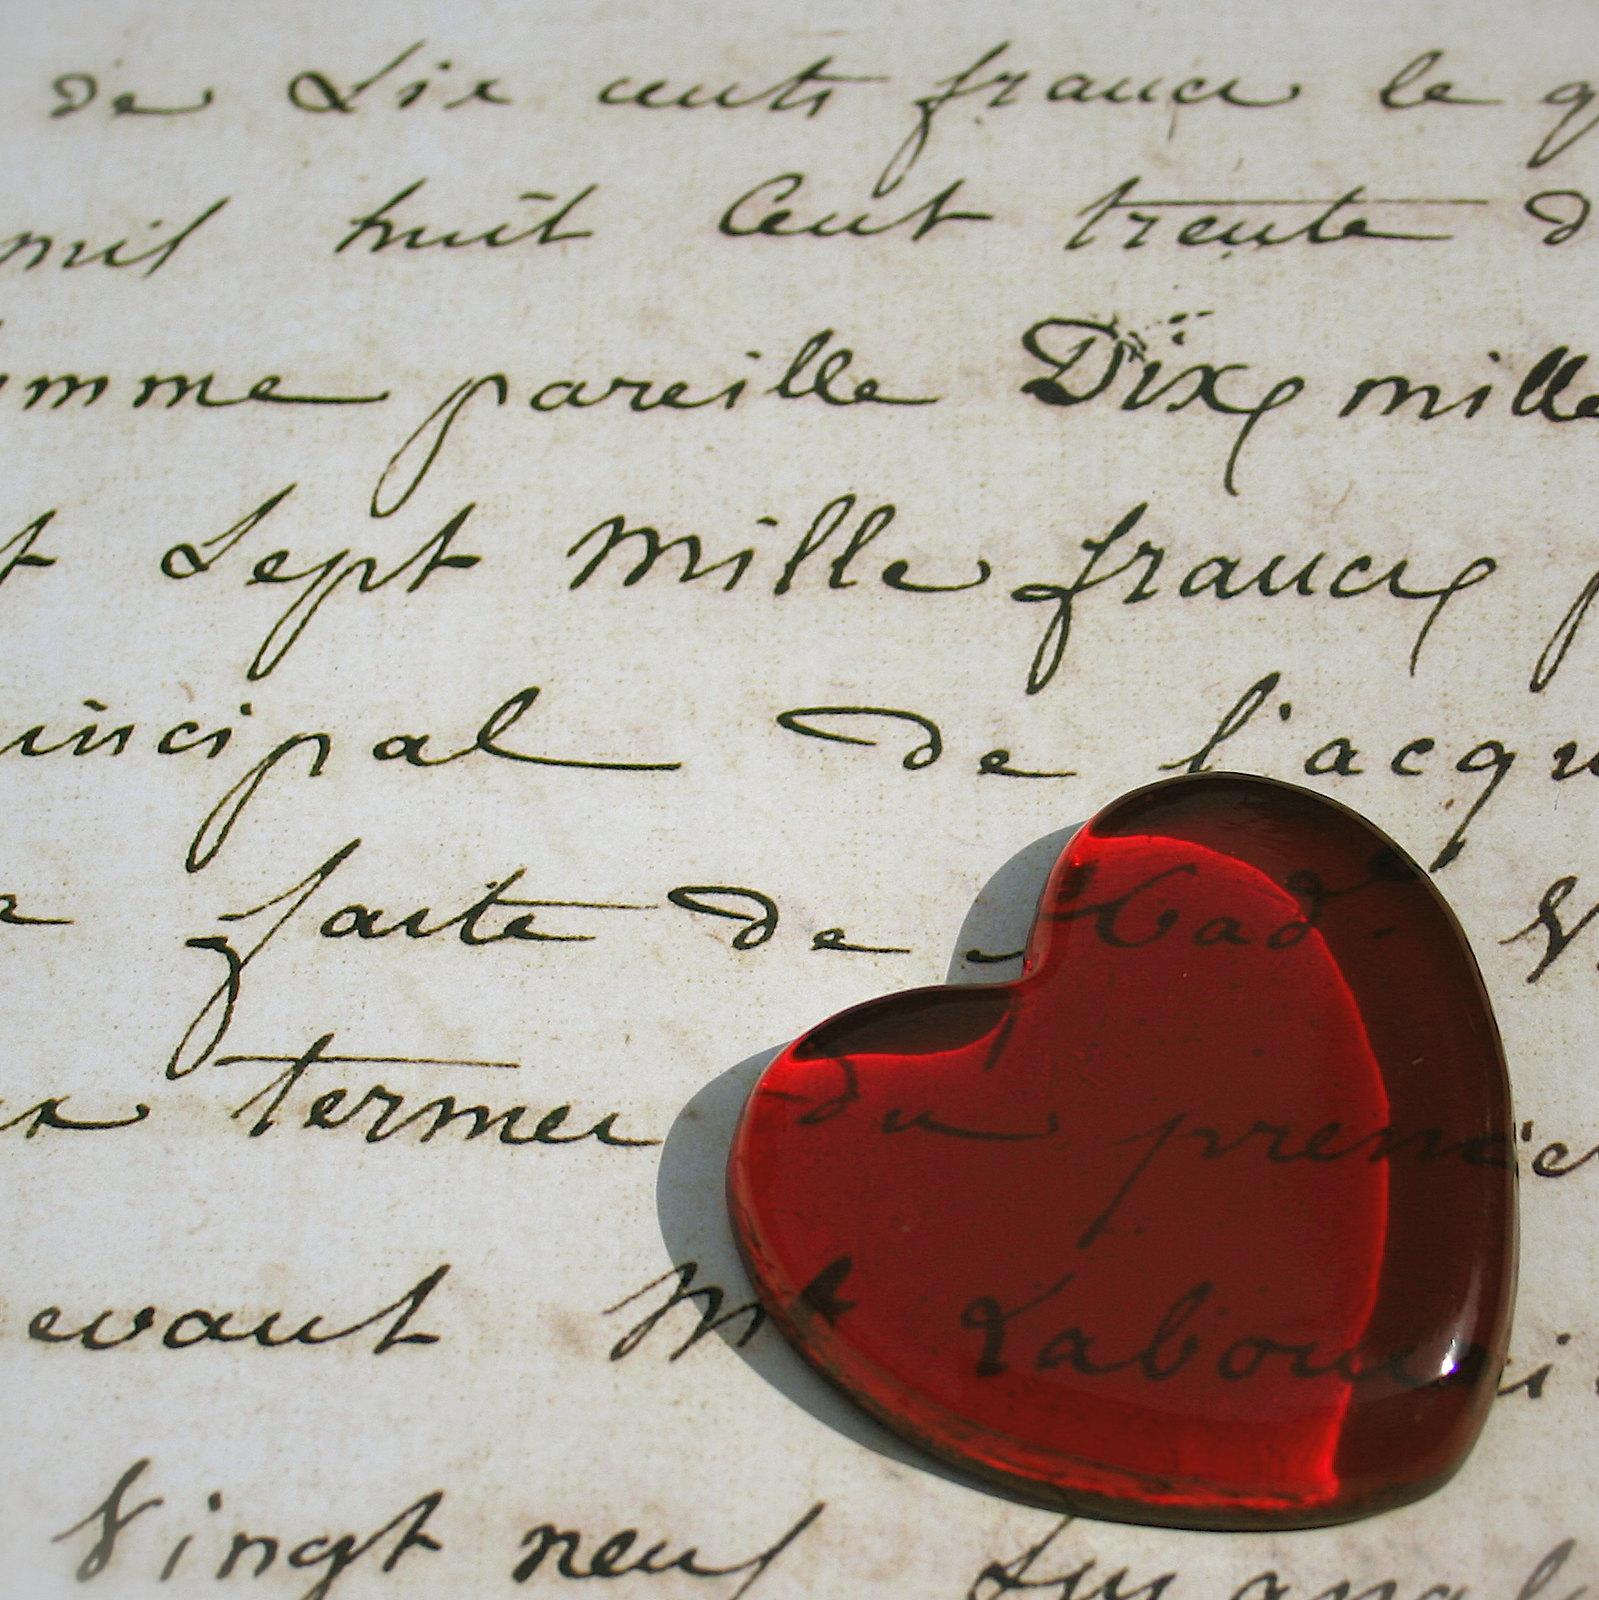 de Six cents francs le q
mil huit Cent trente d
omme pareille Dix mille
t Sept mille francs p
incipal de l'acqu
faite de Mad.e V
ux termes du premier
evant Me Labou
Vingt neuf